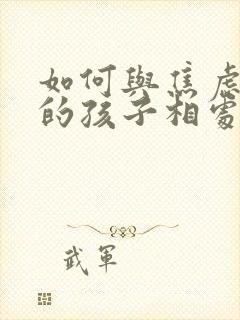 如何與焦慮
的孩子相處
武軍